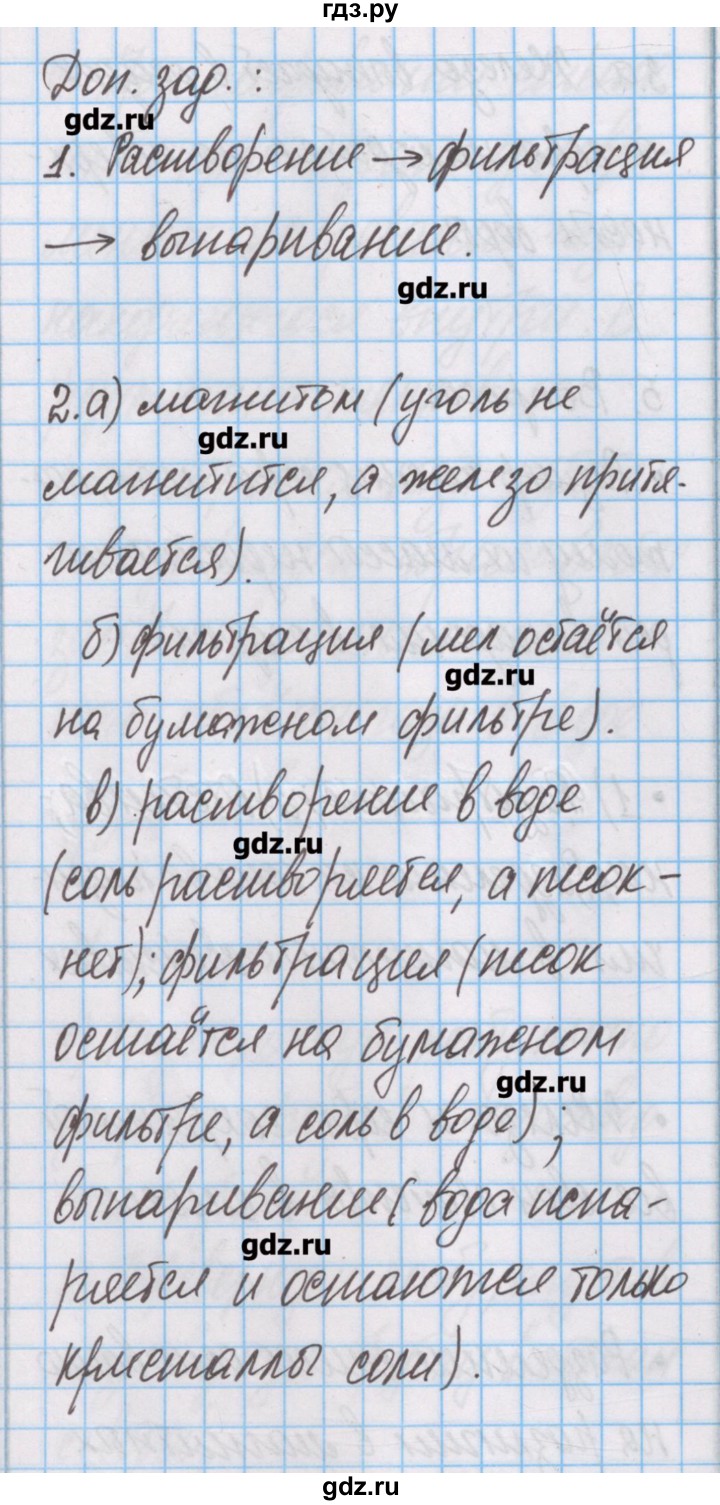 гдз.ру
Доп. зад. :
gdz.ru
1. Растворение → фильтрация
→ выпаривание.
gdz.ru
2. а) магнитом (уголь не
gdz.ru
магнитится, а железо притя-
гивается).
б) фильтрация (мел остаётся
gdz.ru
на бумажном фильтре).
в) растворение в воде
gdz.ru
(соль растворяется, а песок -
нет); фильтрация (песок
остаётся на бумажном
gdz.ru
фильтре, а соль в воде);
выпаривание (вода испа-
gdz.ru
ряется и остаются только
кристаллы соли).
gdz.ru